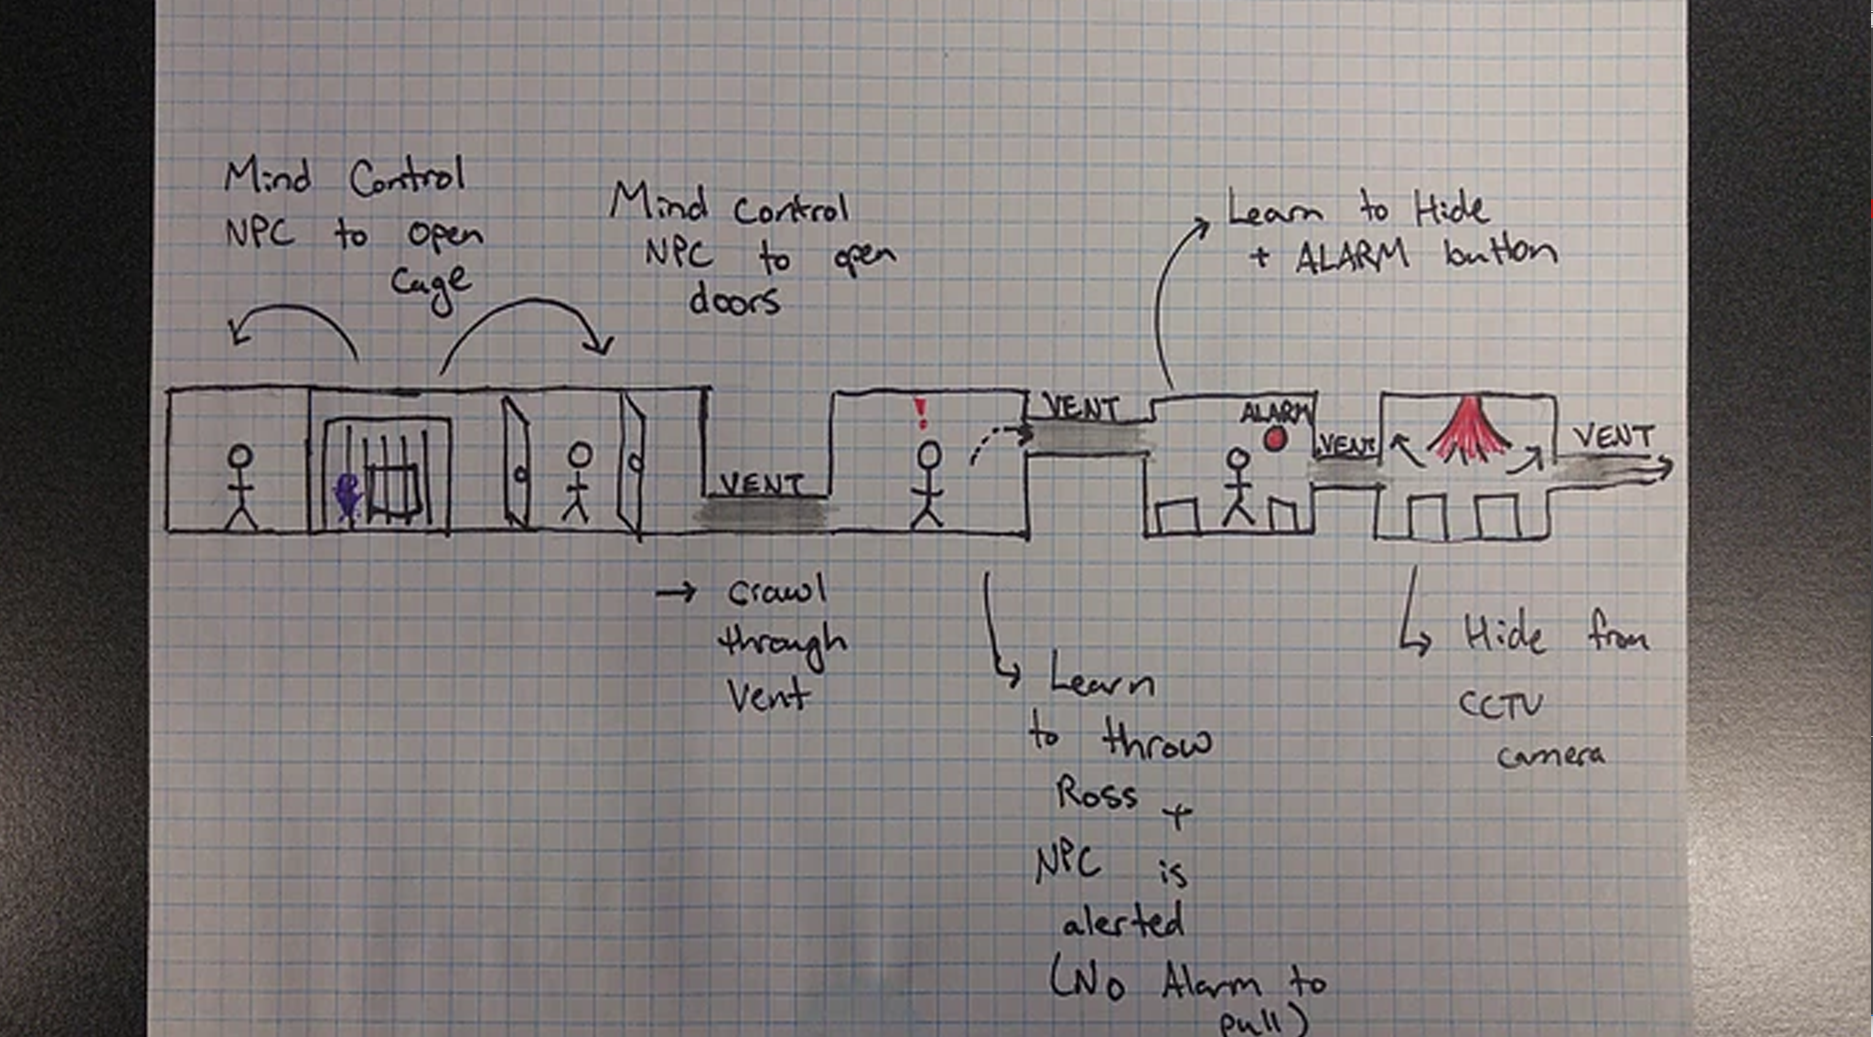 Mind Control
NPC to open
Cage
Mind Control
NPC to open
doors
Learn to Hide
+ ALARM button
!
VENT
VENT
ALARM
VENT
VENT
→ Crawl
through
Vent
Learn
to throw
Ross +
NPC is
alerted
(No Alarm to
pull)
Hide from
CCTV
camera